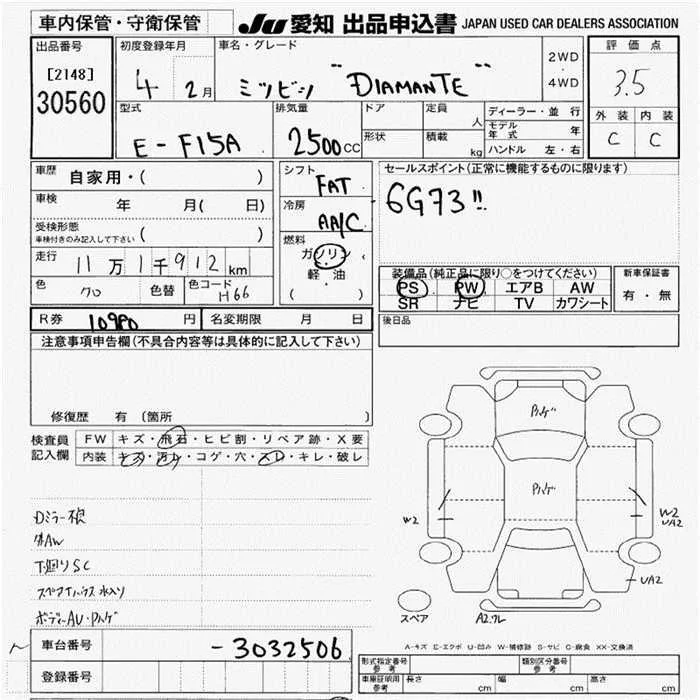 車内保管・守衛保管
JU 愛知 出品申込書 JAPAN USED CAR DEALERS ASSOCIATION
出品番号
[2148]
30560
初度登録年月
4 2月
車名・グレード
ミツビシ "DIAMANTE"
2WD
・
4WD
評価点
3.5
外装 内装
C C
型式
E-F15A
排気量
2500CC
ドア
形状
定員
人
積載
kg
ディーラー・並行
モデル年式 年
ハンドル 左・右
車歴 自家用・( )
車検 年 月( 日)
受検形態
車検付きのみ記入して下さい ( )
走行 11万1千912km
色 クロ 色替 色コード H66
シフト
FAT
冷房
AA/C
燃料
ガソリン
・
軽・油
( )
セールスポイント(正常に機能するものに限ります)
6G73!!
装備品(純正品に限り○をつけてください)
PS PW エアB AW
SR ナビ TV カワシート
新車保証書
有・無
後日品
R券 10980円 名変期限 月 日
注意事項申告欄(不具合内容等は具体的に記入して下さい)
修復歴 有 〔箇所
検査員
記入欄
FW キズ・飛石・ヒビ割・リペア跡・X要
内装 キズ・汚レ・コゲ・穴・スレ・キレ・破レ
Dミラー破
外AW
下廻りSC
スペアタイハウス水入り
ボディーAU・Pハゲ
Pハゲ
Pハゲ
W2
W2
UA2
UA2
スペア
A2.クレ
A-キズ E-エクボ U-凹み W-補修跡 S-サビ C-腐食 XX-交換済
車台番号 -3032506
登録番号
形式指定番号
参考
類別区分番号
参考
車庫証明用
参考
長さ cm 幅 cm 高さ cm